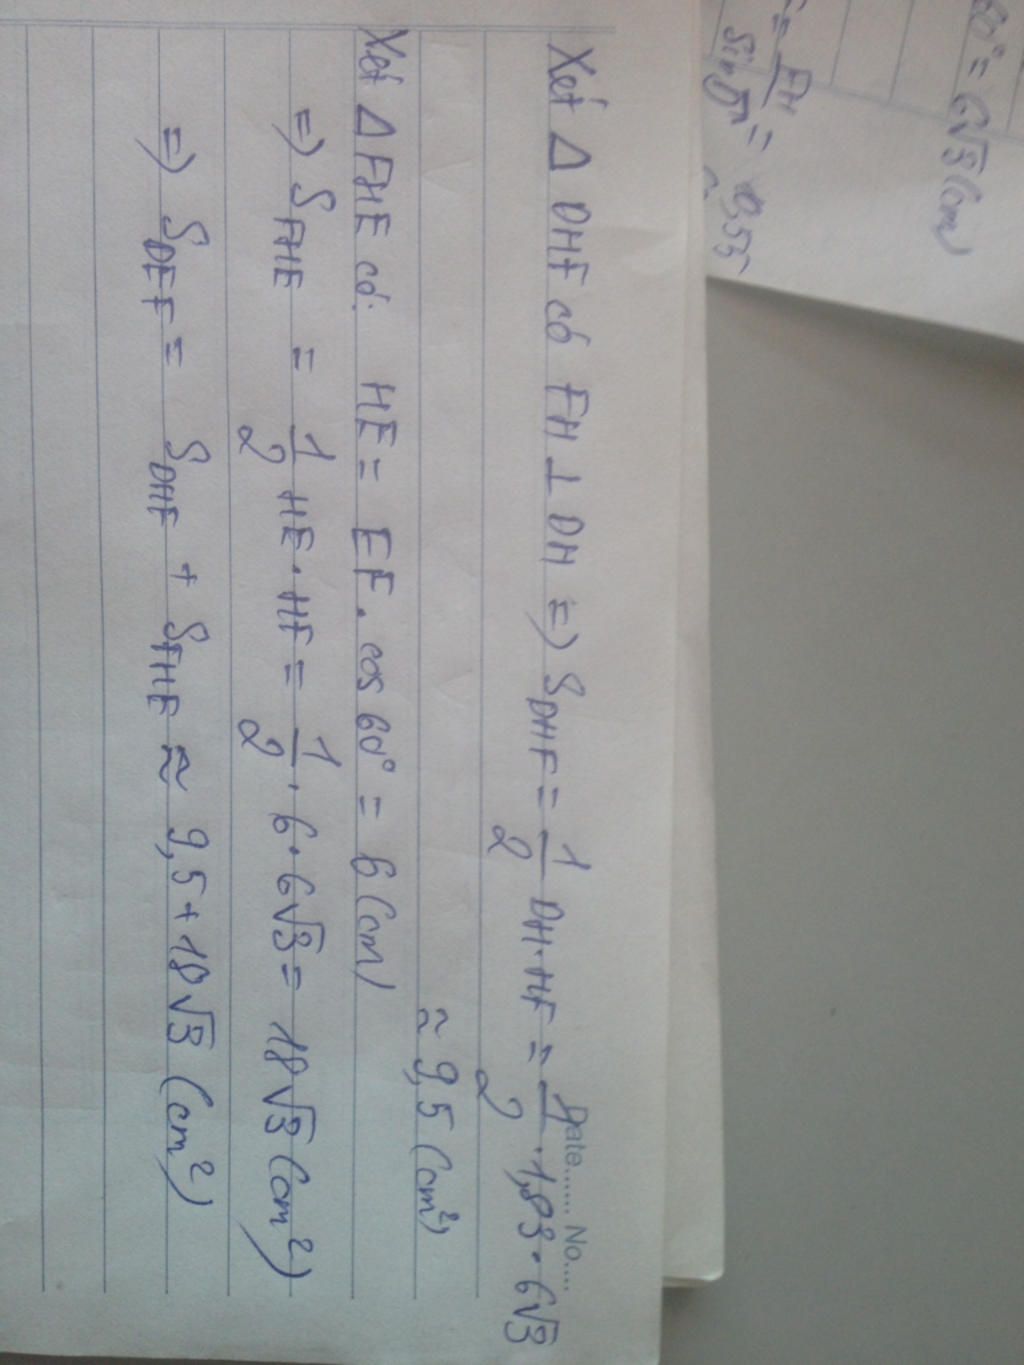 60° = 6√3 (cm)
= FH/sin D = 10,55
Date....... No....
Xét Δ DHF có FH ⊥ DH => S_DHF = 1/2 DH.HF = 1/2 . 1,83 . 6√3
≈ 9,5 (cm²)
Xét Δ FHE có: HE = EF . cos 60° = 6 (cm)
=> S_FHE = 1/2 HE . HF = 1/2 . 6 . 6√3 = 18√3 (cm²)
=> S_DEF = S_DHF + S_FHE ≈ 9,5 + 18√3 (cm²)